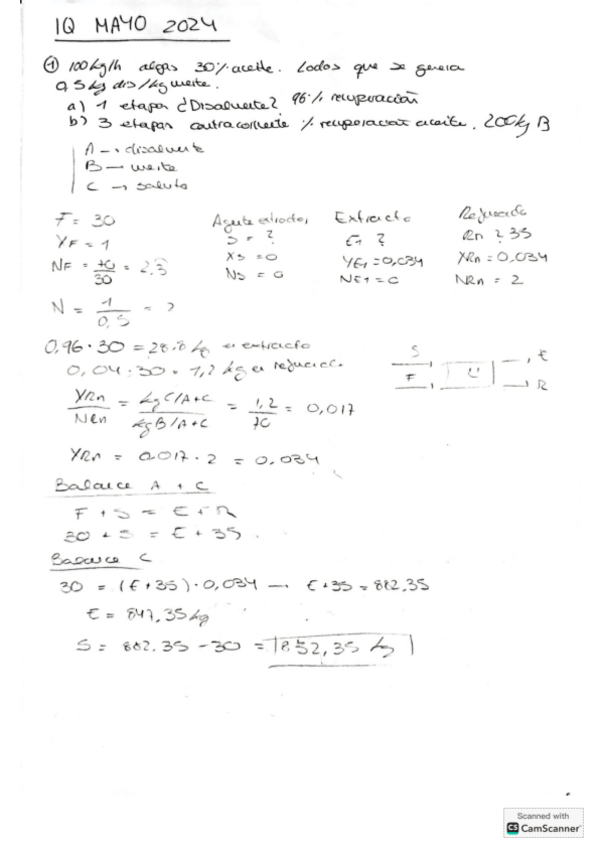 IQ MAYO 2024
① 100 kg/h algas 30% aceite. Lodos que se genera
0,5 kg dis/kg inerte.
a) 1 etapa ¿Disolvente? 96% recuperación
b) 3 etapas contracorriente % recuperación aceite. 200kg B
A → disolvente
B — inerte
C → soluto
F = 30
YF = 1
NF = 70/30 = 2,3
N = 1/0,5 = 2
Agente extractor
S = ?
XS = 0
NS = 0
Extracto
E1 ?
YE1 = 0,034
NE1 = 0
Refinado
Rn ? 35
XRn = 0,034
NRn = 2
0,96 · 30 = 28.8 kg en extracto
0,04 · 30 = 1,2 kg en refinado
YRn/NRn = kgC/A+C / kgB/A+C = 1,2/70 = 0,017
YRn = 0.017 · 2 = 0.034
S
F
E
R
Balance A + C
F + S = E + R
30 + S = E + 35.
Balance C
30 = (E + 35) · 0,034 → E + 35 = 882,35
E = 847,35 kg
S = 882.35 - 30 = 852,35 kg
Scanned with
CS CamScanner